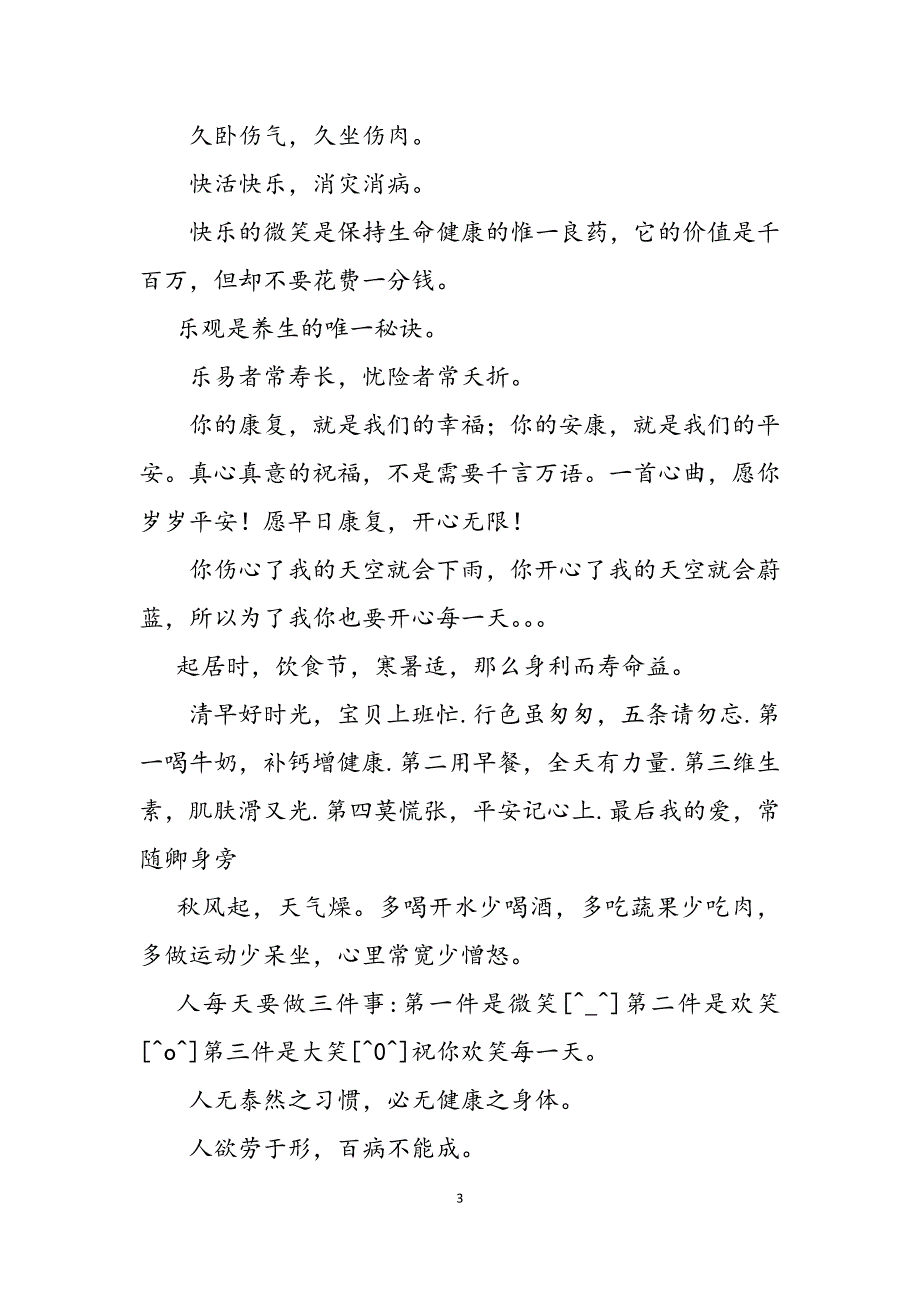 久卧伤气，久坐伤肉。
快活快乐，消灾消病。
快乐的微笑是保持生命健康的惟一良药，它的价值是千
百万，但却不要花费一分钱。
乐观是养生的唯一秘诀。
乐易者常寿长，忧险者常夭折。
你的康复，就是我们的幸福；你的安康，就是我们的平
安。真心真意的祝福，不是需要千言万语。一首心曲，愿你
岁岁平安！愿早日康复，开心无限！
你伤心了我的天空就会下雨，你开心了我的天空就会蔚
蓝，所以为了我你也要开心每一天。。。
起居时，饮食节，寒暑适，那么身利而寿命益。
清早好时光，宝贝上班忙.行色虽匆匆，五条请勿忘.第
一喝牛奶，补钙增健康.第二用早餐，全天有力量.第三维生
素，肌肤滑又光.第四莫慌张，平安记心上.最后我的爱，常
随卿身旁
秋风起，天气燥。多喝开水少喝酒，多吃蔬果少吃肉，
多做运动少呆坐，心里常宽少憎怒。
人每天要做三件事:第一件是微笑[^_^]第二件是欢笑
[^o^]第三件是大笑[^0^]祝你欢笑每一天。
人无泰然之习惯，必无健康之身体。
人欲劳于形，百病不能成。
3